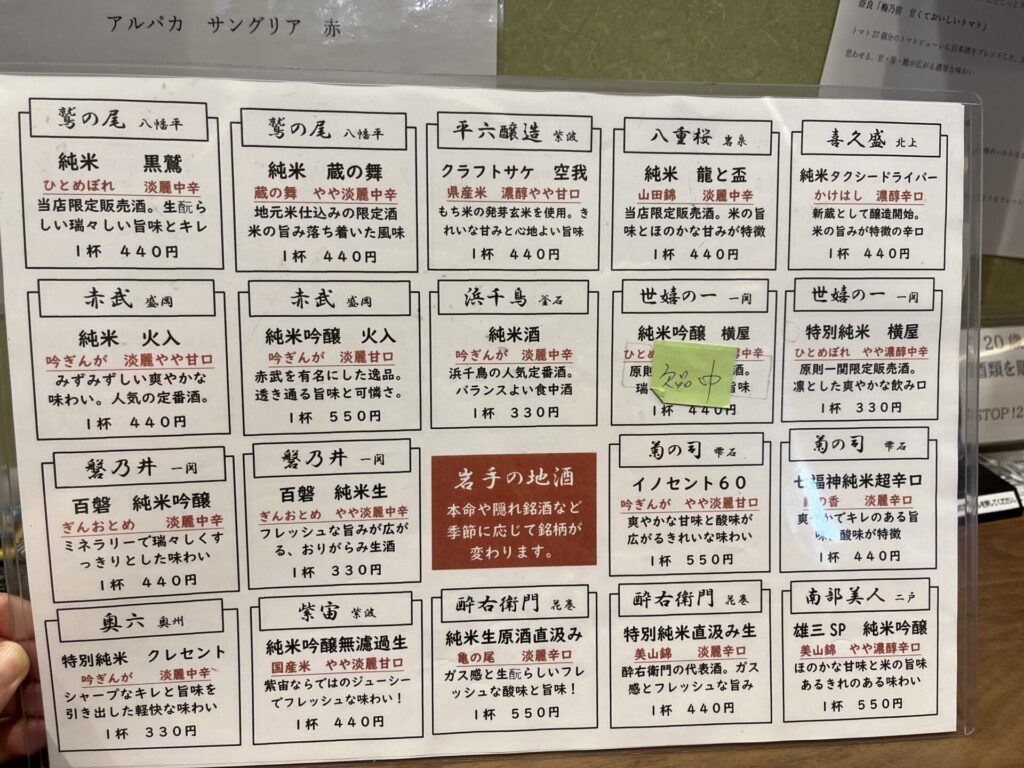 アルパカ サングリア 赤
奈良「梅乃宿 甘くておいしいトマト」
トマト27個分のトマトピューレに日本酒をブレンドした、
思わせる、甘・旨・酸が広がる濃厚な味わい
鷲の尾 八幡平
純米 黒鷲
ひとめぼれ 淡麗中辛
当店限定販売酒。生酛ら
しい瑞々しい旨味とキレ
1杯 440円
鷲の尾 八幡平
純米 蔵の舞
蔵の舞 やや淡麗中辛
地元米仕込みの限定酒
米の旨み落ち着いた風味
1杯 440円
平六醸造 紫波
クラフトサケ 空我
県産米 濃醇やや甘口
もち米の発芽玄米を使用。き
れいな甘みと心地よい旨味
1杯 440円
八重桜 岩泉
純米 龍と盃
山田錦 淡麗中辛
当店限定販売酒。米の旨
味とほのかな甘みが特徴
1杯 440円
喜久盛 北上
純米タクシードライバー
かけはし 濃醇辛口
新蔵として醸造開始。
米の旨みが特徴の辛口
1杯 440円
赤武 盛岡
純米 火入
吟ぎんが 淡麗やや甘口
みずみずしい爽やかな
味わい。人気の定番酒。
1杯 440円
赤武 盛岡
純米吟醸 火入
吟ぎんが 淡麗甘口
赤武を有名にした逸品。
透き通る旨味と可憐さ。
1杯 550円
浜千鳥 釜石
純米酒
吟ぎんが 淡麗中辛
浜千鳥の人気定番酒。
バランスよい食中酒
1杯 440円
世嬉の一 一関
純米吟醸 横屋
ひとめ 中辛
原則 売酒。
瑞 旨味
1杯 440円
欠品中
世嬉の一 一関
特別純米 横屋
ひとめぼれ やや濃醇中辛
原則一関限定販売酒。
凛とした爽やかな飲み口
1杯 330円
20歳
酒類を販
STOP!2
磐乃井 一関
百磐 純米吟醸
ぎんおとめ 淡麗中辛
ミネラリーで瑞々しくす
っきりとした味わい
1杯 440円
磐乃井 一関
百磐 純米生
ぎんおとめ やや淡麗中辛
フレッシュな旨みが広が
る、おりがらみ生酒
1杯 330円
岩手の地酒
本命や隠れ銘酒など
季節に応じて銘柄が
変わります。
菊の司 雫石
イノセント60
吟ぎんが やや淡麗甘口
爽やかな甘味と酸味が
広がるきれいな味わい
1杯 550円
菊の司 雫石
七福神純米超辛口
の香 淡麗辛口
爽やかでキレのある旨
味、酸味が特徴
1杯 440円
奥六 奥州
特別純米 クレセント
吟ぎんが 淡麗中辛
シャープなキレと旨味を
引き出した軽快な味わい
1杯 330円
紫宙 紫波
純米吟醸無濾過生
国産米 やや淡麗甘口
紫宙ならではのジューシー
でフレッシュな味わい！
1杯 440円
酔右衛門 花巻
純米生原酒直汲み
亀の尾 淡麗辛口
ガス感と生酛らしいフレ
ッシュな酸味と旨味！
1杯 550円
酔右衛門 花巻
特別純米直汲み生
美山錦 淡麗辛口
酔右衛門の代表酒。ガス
感とフレッシュな旨み
1杯 440円
南部美人 二戸
雄三SP 純米吟醸
美山錦 やや濃醇辛口
ほのかな甘味と米の旨味
あるきれのある味わい
1杯 550円